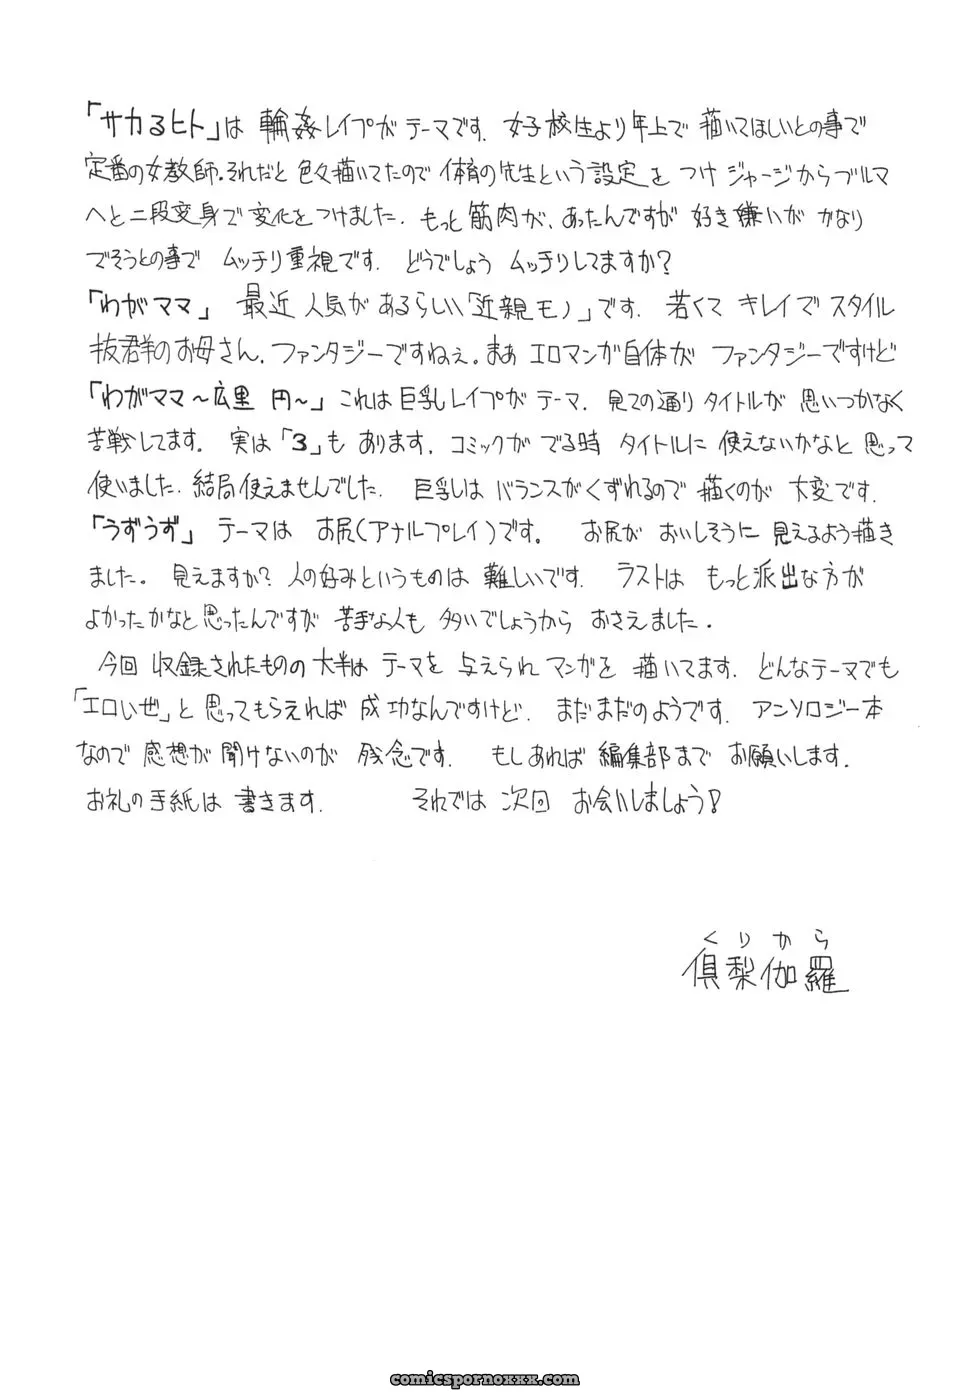 「サカるヒト」は 輪姦レイプがテーマです. 女子校生より年上で 描いてほしいとの事で
定番の女教師。それだと色々描いてたので 体育の先生という設定を つけ ジャージからブルマ
へと二段変身で変化をつけました. もっと筋肉が、あったんですが 好き嫌いが かなり
でそうとの事で ムッチリ重視です. どうでしょう ムッチリしてますか?
「わがママ」 最近 人気が あるらしい「近親モノ」です. 若くて キレイで スタイル
抜群のお母さん. ファンタジーですねぇ. まぁ エロマンガ自体が ファンタジーですけど
「わがママ～広里 円～」これは巨乳レイプが テーマ. 見ての通り タイトルが 思いつかなく
苦戦してます。 実は「3」も あります. コミックが でる時 タイトルに 使えないかなと 思って
使いました. 結局使えませんでした. 巨乳は バランスがくずれるので 描くのが 大変です.
「うずうず」 テーマは お尻(アナルプレイ)です。 お尻が おいしそうに 見えるよう描き
ました。 見えますか? 人の好みというものは 難しいです. ラストは もっと派出な方が
よかったかなと思ったんですが 苦手な人も 多いでしょうから おさえました.
今回 収録されたものの 大半は テーマを 与えられ マンガを 描いてます. どんなテーマでも
「エロいぜ」と 思ってもらえれば 成功なんですけど. まだまだのようです. アンソロジー本
なので 感想が 聞けないのが 残念です. もしあれば 編集部まで お願いします.
お礼の手紙は 書きます. それでは 次回 お会いしましょう!
くりから
倶梨伽羅
comicspornoxxx.com